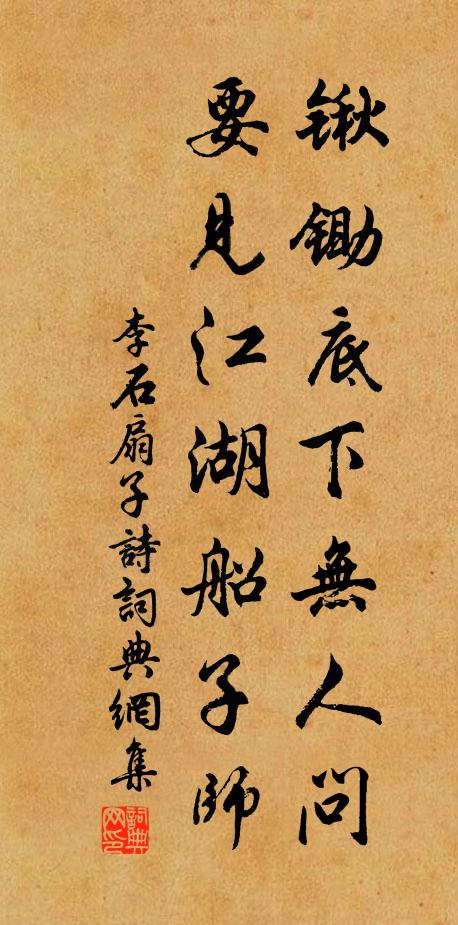 锹锄底下無人問
要見江湖船子師
李石扇子詩詞典網集
詞典网印